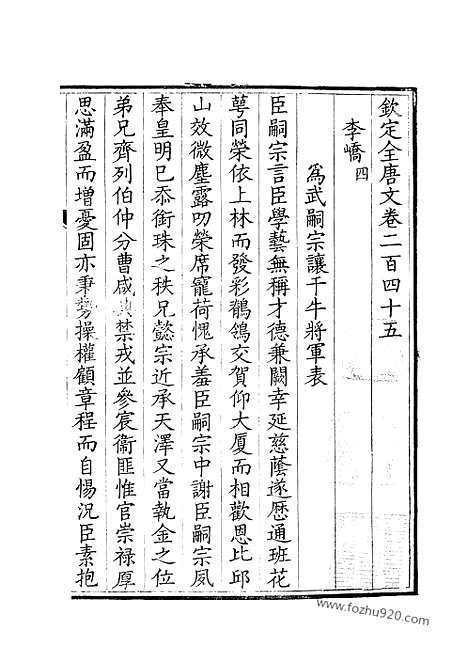 欽定全唐文卷二百四十五
李嶠四
為武嗣宗讓千牛將軍表
臣嗣宗言臣學藝無稱才德兼闕幸延慈蔭遂歷通班花
萼同榮依上林而發彩鶺鴒交賀仰大厦而相歡恩比邱
山效微塵露叨榮席寵荷愧承羞臣嗣宗中謝臣嗣宗夙
奉皇明巳忝銜珠之秩兄懿宗近承天澤又當執金之位
弟兄齊列伯仲分曹咸典禁戎並參宸衞匪惟官崇祿厚
思滿盈而增憂固亦秉勢操權顧章程而自惕況臣素抱
www.fozhu920.com